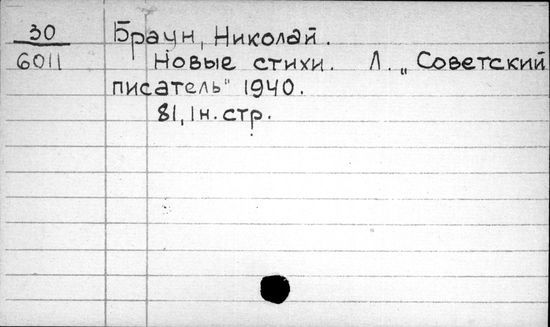 30 Браун, Николай.
6011 Новые стихи. Л. „Советский
писатель" 1940.
81, 1 н. стр.